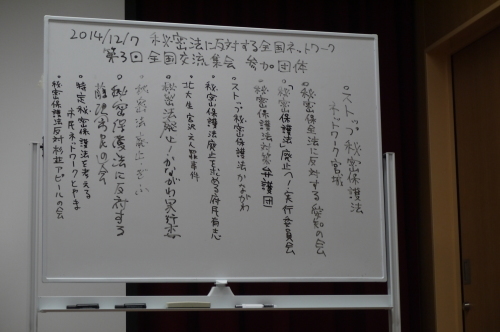 2014/12/7 秘密法に反対する全国ネットワーク
第3回全国交流集会 参加団体
・ストップ秘密保護法
ネットワーク宮城
・秘密保全法に反対する愛知の会
・「秘密保護法」廃止へ!実行委員会
・秘密保護法対策弁護団
・ストップ秘密保護法かながわ
・秘密保護法廃止を求める府民有志
・北大生・宮沢・レーン事件
・秘密法廃止!かながわ実行委
・秘密保護法に反対する
藤沢市民の会
・特定秘密保護法を考える
市民ネットワークとやま
・秘密保護法反対杉並アピールの会